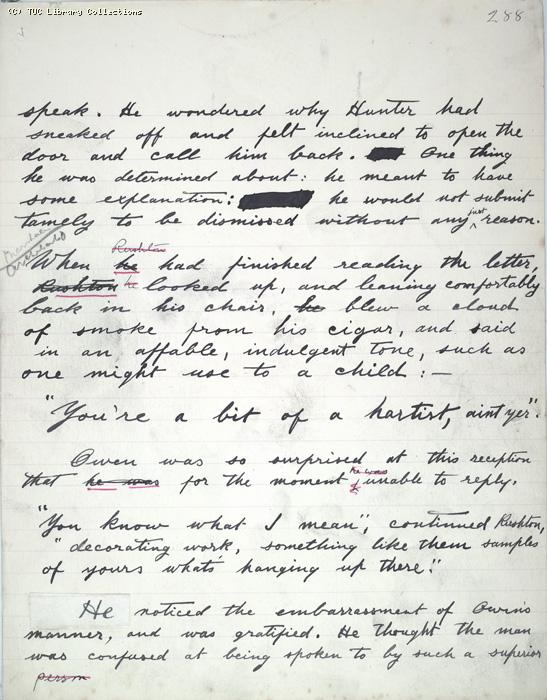 (C) TUC Library Collections
288
speak. He wondered why Hunter had
sneaked off and felt inclined to open the
door and call him back. One thing
he was determined about: he meant to have
some explanation: he would not submit
tamely to be dismissed without any just reason.
Rushton
When he had finished reading the letter,
Rushton he looked up, and leaning comfortably
back in his chair, he blew a cloud
of smoke from his cigar, and said
in an affable, indulgent tone, such as
one might use to a child:—
"You're a bit of a hartist, aint yer".
Owen was so surprised at this reception
that he was for the moment he was unable to reply.
"You know what I mean", continued Rushton,
"decorating work, something like them samples
of yours whats hanging up there."
He noticed the embarrassment of Owen's
manner, and was gratified. He thought the man
was confused at being spoken to by such a superior
person